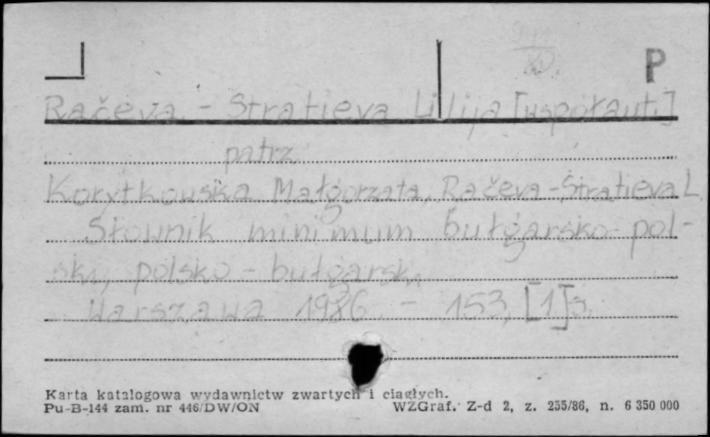 P
Račeva - Stratieva Lilija [współaut.]
patrz
Korytkowska Małgorzata, Račeva-Stratieva L.
Słownik minimum bułgarsko-pol-
ski, polsko-bułgarski,
Warszawa 1986. - 153, [1] s.
Karta katalogowa wydawnictw zwartych i ciągłych.
Pu-B-144 zam. nr 446/DW/ON WZGraf. Z-d 2, z. 255/86, n. 6 350 000